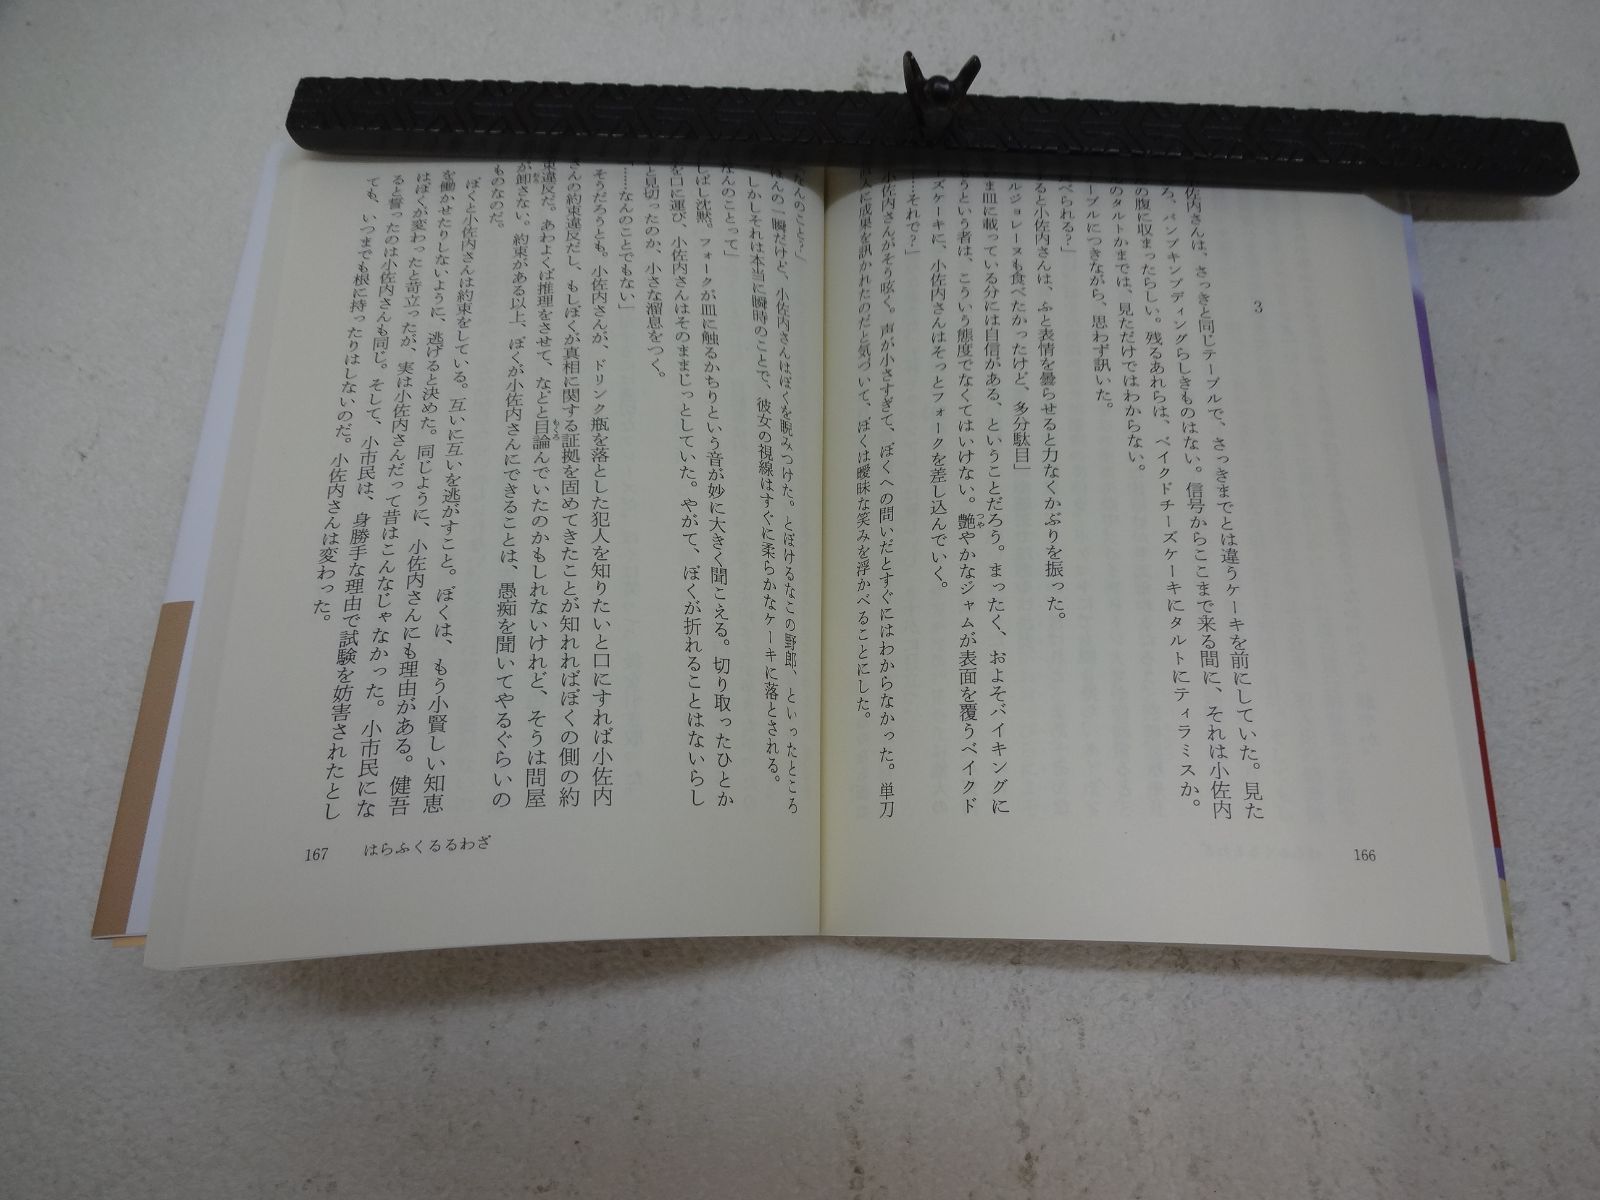 3
佐内さんは、さっきと同じテーブルで、さっきまでとは違うケーキを前にしていた。見た
ろ、パンプキンプディングらしきものはない。信号からここまで来る間に、それは小佐内
の腹に収まったらしい。残るあれらは、ベイクドチーズケーキにタルトにティラミスか。
のタルトかまでは、見ただけではわからない。
ーブルにつきながら、思わず訊いた。
べられる?」
ると小佐内さんは、ふと表情を曇らせると力なくかぶりを振った。
ルジョレーヌも食べたかったけど、多分駄目」
ま皿に載っている分には自信がある、ということだろう。まったく、およそバイキングに
もうという者は、こういう態度でなくてはいけない。艶やかなジャムが表面を覆うベイクド
ーズケーキに、小佐内さんはそっとフォークを差し込んでいく。
……それで?」
小佐内さんがそう呟く。声が小さすぎて、ぼくへの問いだとすぐにはわからなかった。単刀
入に成果を訊かれたのだと気づいて、ぼくは曖昧な笑みを浮かべることにした。
166
なんのこと?」
ほんの一瞬だけど、小佐内さんはぼくを睨みつけた。とぼけるなこの野郎、といったところ
しかしそれは本当に瞬時のことで、彼女の視線はすぐに柔らかなケーキに落とされる。
なんのことって」
しばし沈黙。フォークが皿に触るかちりという音が妙に大きく聞こえる。切り取ったひとか
を口に運び、小佐内さんはそのままじっとしていた。やがて、ぼくが折れることはないらし
と見切ったのか、小さな溜息をつく。
……なんのことでもない」
そうだろうとも。小佐内さんが、ドリンク瓶を落とした犯人を知りたいと口にすれば小佐内
さんの約束違反だし、もしぼくが真相に関する証拠を固めてきたことが知れればぼくの側の約
束違反だ。あわよくば推理をさせて、などと目論んでいたのかもしれないけれど、そうは問屋
が卸さない。約束がある以上、ぼくが小佐内さんにできることは、愚痴を聞いてやるぐらいの
ものなのだ。
ぼくと小佐内さんは約束をしている。互いに互いを逃がすこと。ぼくは、もう小賢しい知恵
を働かせたりしないように、逃げると決めた。同じように、小佐内さんにも理由がある。健吾
はぼくが変わったと苛立ったが、実は小佐内さんだって昔はこんなじゃなかった。小市民にな
ると誓ったのは小佐内さんも同じ。そして、小市民は、身勝手な理由で試験を妨害されたとし
ても、いつまでも根に持ったりはしないのだ。小佐内さんは変わった。
167 はらふくるるわざ